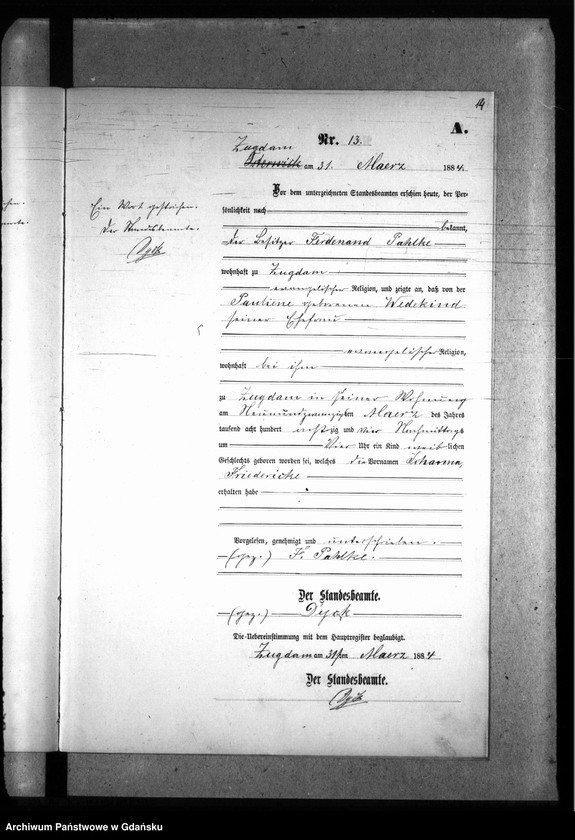 14
A.
Nr. 13.
Zugdam
Osterwick am 31. Maerz 1884.
Vor dem unterzeichneten Standesbeamten erschien heute, der Per-
sönlichkeit nach
bekannt,
der Besitzer Ferdenand Pahlke
wohnhaft zu Zugdam
evangelischer Religion, und zeigte an, daß von der
Pauliene geborenen Wedekind
seiner Ehefrau
evangelischer Religion,
wohnhaft bei ihm
zu Zugdam in seiner Wohnung
am Neunundzwanzigsten Maerz des Jahres
tausend acht hundert achtzig und vier Nachmittags
um Vier Uhr ein Kind weiblichen
Geschlechts geboren worden sei, welches die Vornamen Johanna,
Friedericke
erhalten habe
Vorgelesen, genehmigt und unterschrieben.
(gez.) F. Pahlke.
Der Standesbeamte.
(gez.) Dyck
Die Uebereinstimmung mit dem Hauptregister beglaubigt.
Zugdam am 31ten Maerz 1884
Der Standesbeamte.
Dyck
Ein Wort gestrichen.
Der Standesbeamte.
Dyck
Archiwum Państwowe w Gdańsku